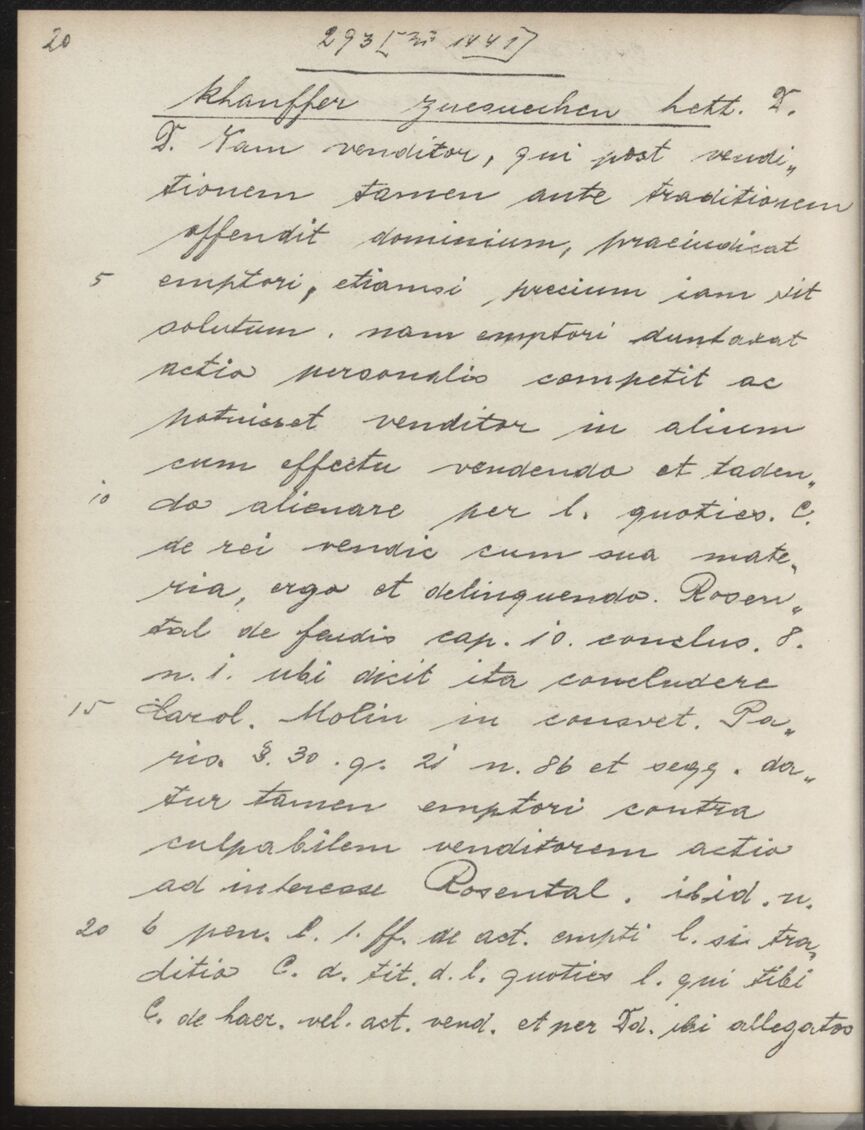 20
293 [zu 1441]
khauffer zuesuechen hett. D.
D. Nam venditor, qui post vendi„
tionem tamen ante traditionem
offendit dominium, praeiudicat
5 emptori, etiamsi precium iam sit
solutum. nam emptori duntaxat
actio personalis competit ac
potuisset venditor in alium
cum effectu vendendo et taden„
10 do alienare per l. quoties. C.
de rei vendic cum sua mate„
ria, ergo et delinquendo. Rosen„
tal de feudis cap. 10. conclus. 8.
n. 1. ubi dicit ita concludere
15 Carol. Molin in consvet. Pa„
ris. §. 30. q. 21 n. 86 et seqq. da„
tur tamen emptori contra
culpabilem venditorem actio
ad interesse Rosental. ibid. n.
20 6 pen. l. 1. ff. de act. empti l. si tra„
ditio C. d. tit. d. l. quoties l. qui tibi
C. de haer. vel. act. vend. et per Dd. ibi allegatos